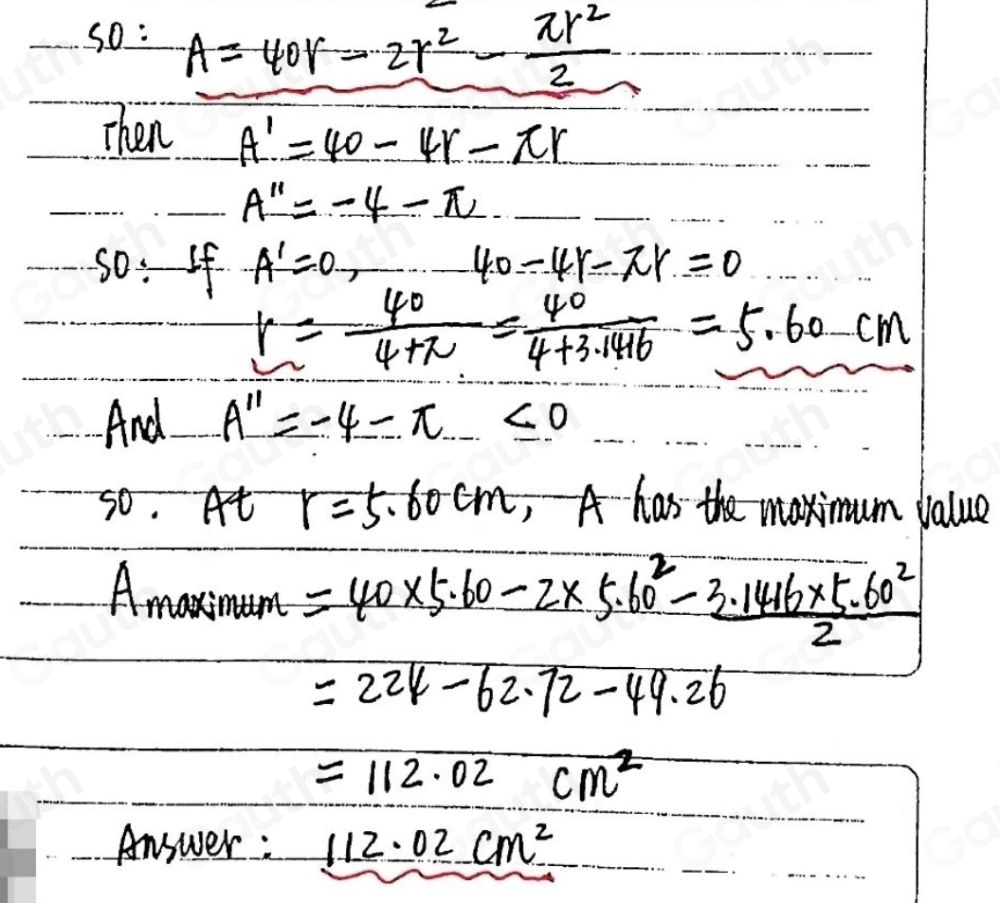 so: A = 40r - 2r² - πr²/2
Then A' = 40 - 4r - πr
A'' = -4 - π
so: If A' = 0, 40 - 4r - πr = 0
r = 40/(4+π) = 40/(4+3.1416) = 5.60 cm
And A'' = -4 - π < 0
so. At r = 5.60cm, A has the maximum value
A maximum = 40 × 5.60 - 2 × 5.60² - 3.1416 × 5.60²/2
= 224 - 62.72 - 49.26
= 112.02 cm²
Answer: 112.02 cm²